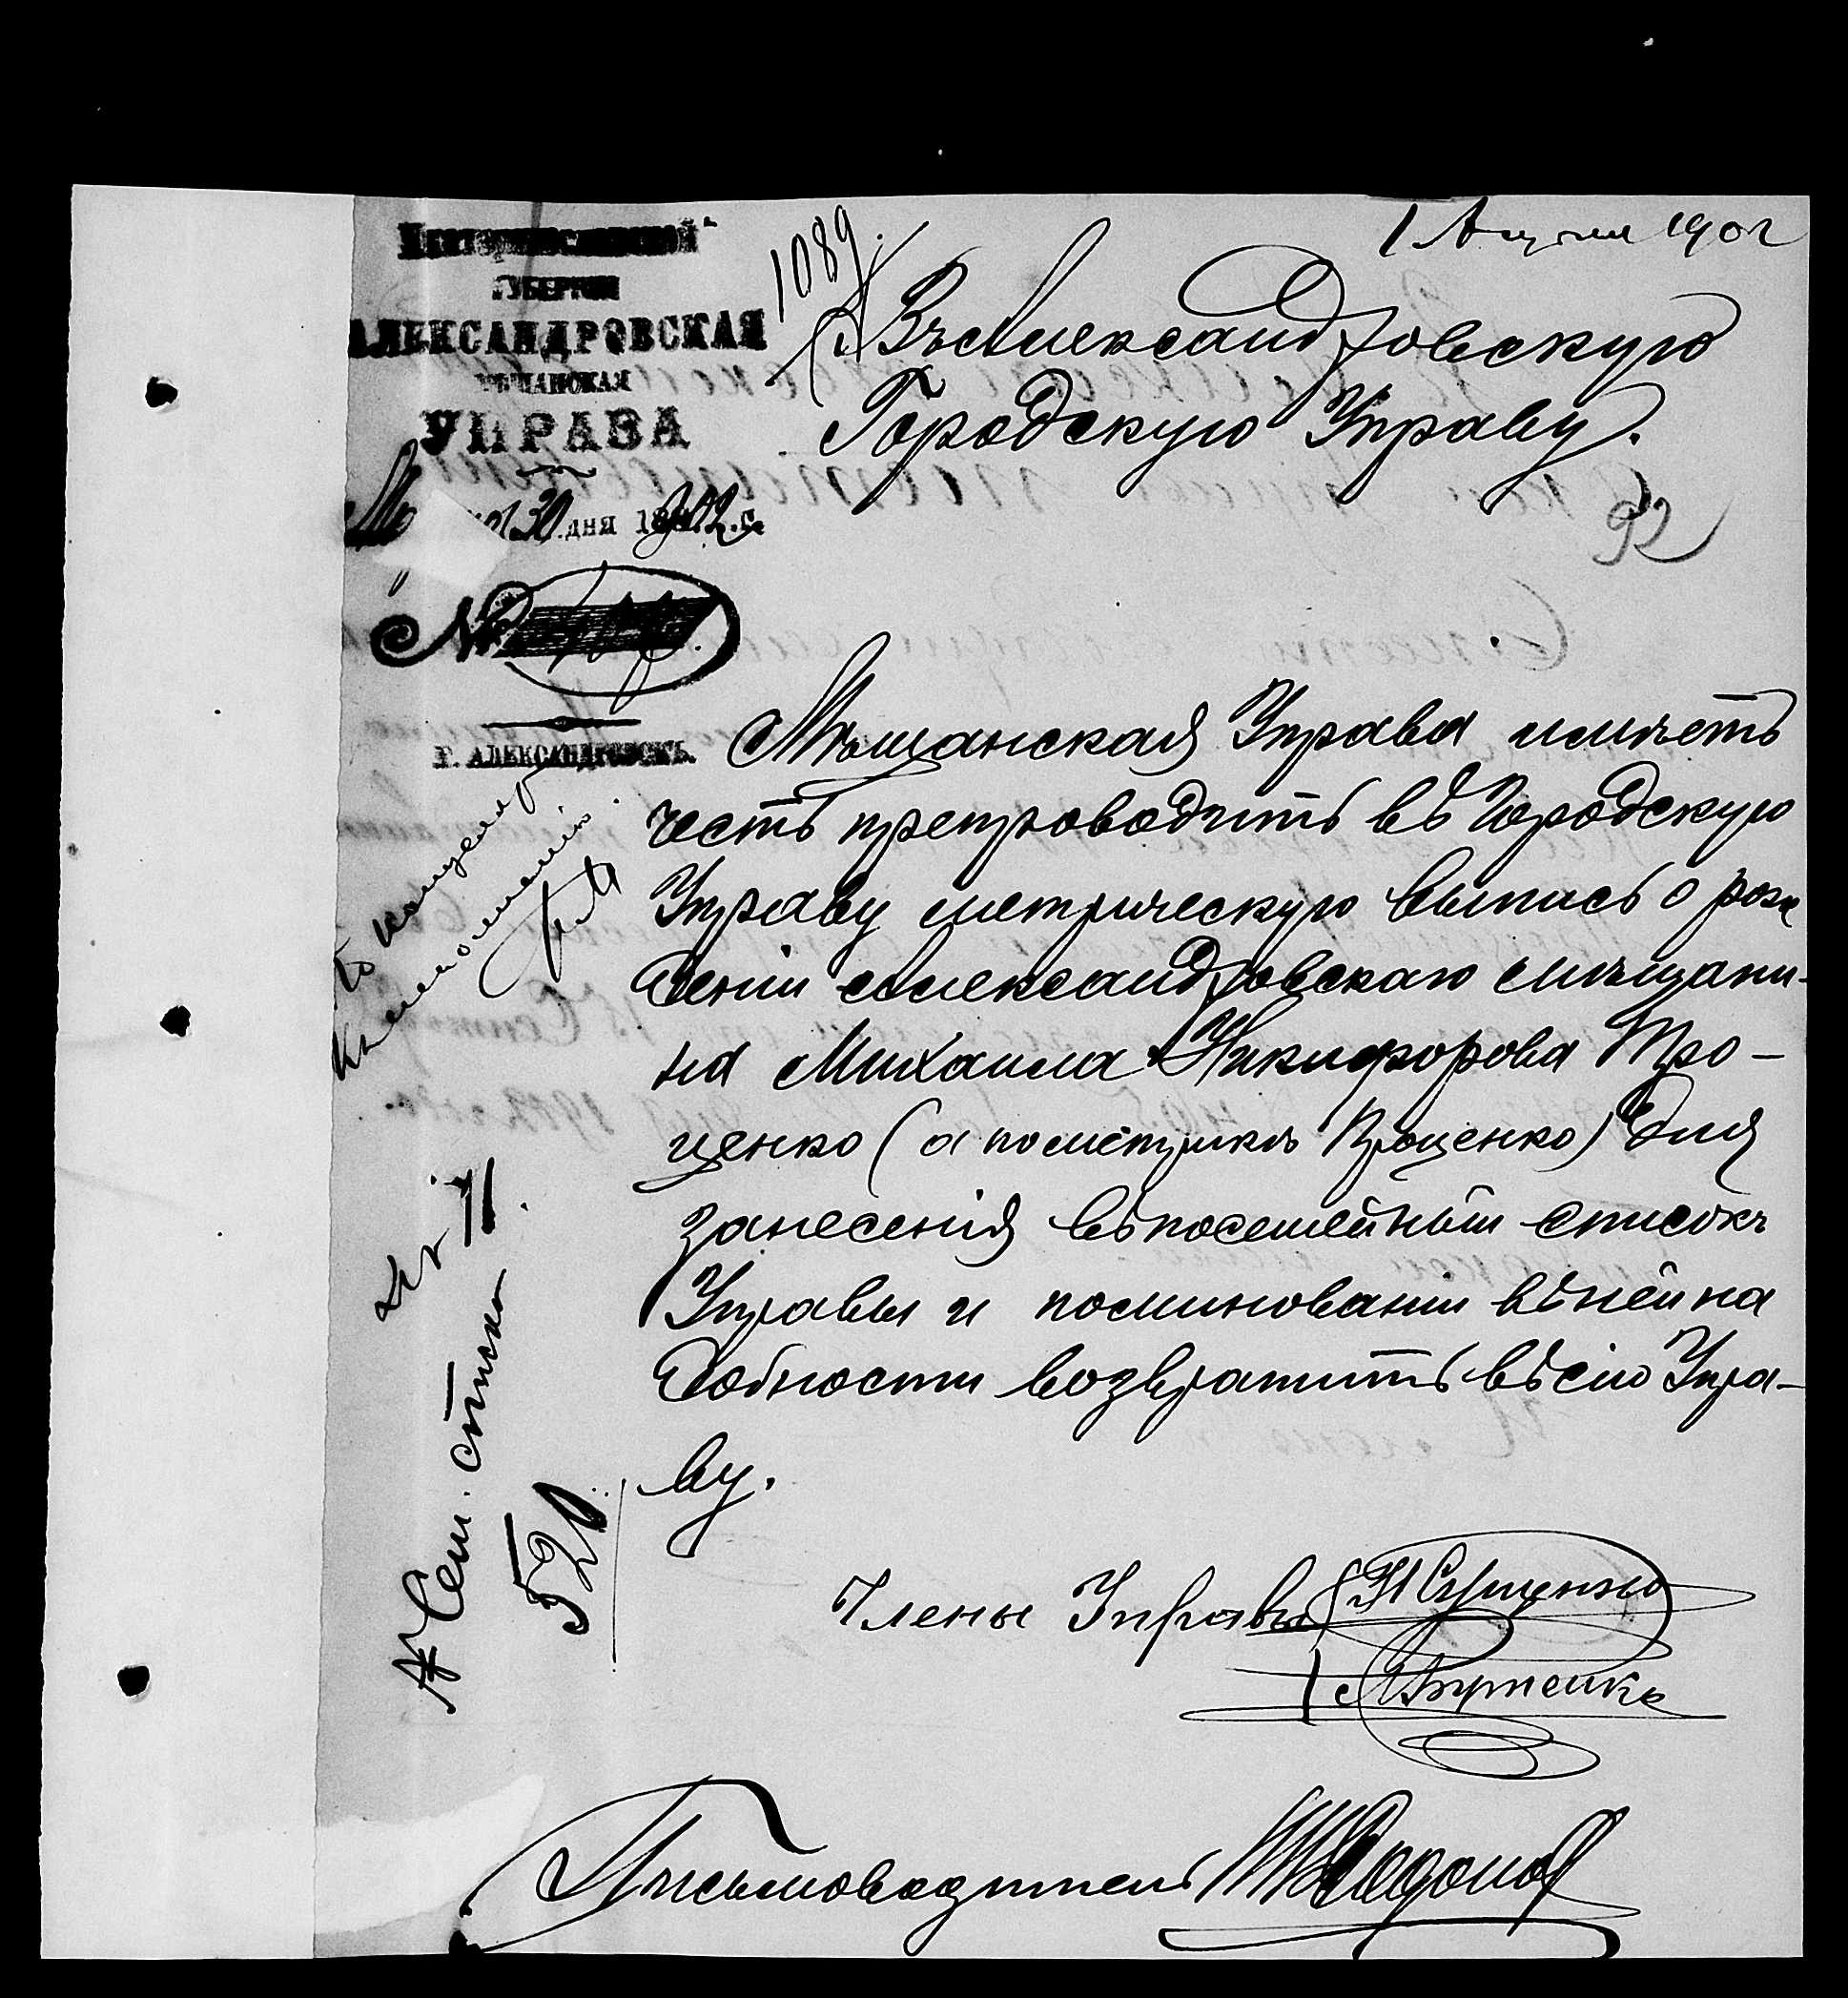 Екатеринославской
ГУБЕРНІИ
АЛЕКСАНДРОВСКАЯ
МѢЩАНСКАЯ
УПРАВА
30 дня 1902 г.
№
Г. АЛЕКСАНДРОВСКЪ.
1089
1902
Въ Александровскую
Городскую Управу.
92
Мѣщанская Управа имѣетъ
честь препроводить въ Городскую
Управу метрическую выпись о рож
деніи Александровскаго мѣщани-
на Михаила Никифорова Тро-
ценко (а по метрикѣ Проценко) для
занесенія въ посемейный списокъ
Управы и по миновании въ ней на
добности возвратить въ сію Упра-
ву.
Члены Управы
Письмоводитель
Къ исполненію.
Сем. списка
520